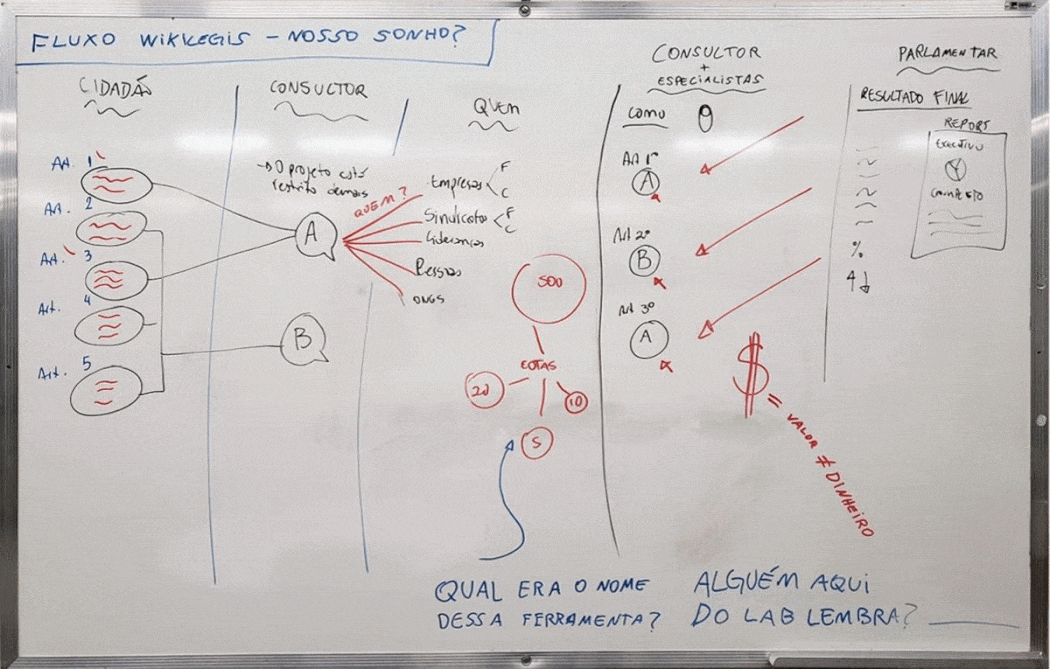 FLUXO WIKILEGIS - NOSSO SONHO?
CIDADÃO
Art. 1
Art. 2
Art. 3
Art. 4
Art. 5
CONSULTOR
→ O projeto está
restrito demais
A
B
QUEM?
QUEM
Empresas F
C
Sindicatos F
C
Lideranças
Pessoas
ONGS
500
COTAS
20
10
5
CONSULTOR
+
ESPECIALISTAS
COMO
Art 1º
A
Art 2º
B
Art 3º
A
$ = VALOR ≠ DINHEIRO
PARLAMENTAR
RESULTADO FINAL
%
REPORT
EXECUTIVO
COMPLETO
QUAL ERA O NOME
DESSA FERRAMENTA?
ALGUÉM AQUI
DO LAB LEMBRA?